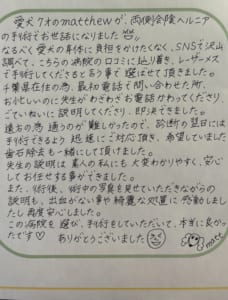 愛犬7才のmatthewが、両側会陰ヘルニア
の手術でお世話になりました
なるべく愛犬の身体に負担をかけたくなく、SNSで沢山
調べて、こちらの病院の口コミに辿り着き、レーザーメス
で手術してくださると言う事で選ばせて頂きました。
千葉県在住の為、最初電話で問い合わせた所、
お忙しいのに先生がわざわざお電話かわってくださり、
ごていねいに説明してくださり、即決できました。
遠方の為通うのが難しかったので、診断の翌日には
手術できるよう迅速にご対応頂き、希望していました
歯石除去も一緒にして頂けました。
先生の説明は素人の私にも大変わかりやすく、安心
してお任せする事ができました。
また、術後、術中の写真を見せていただきながらの
説明も、出血がない事や綺麗な処置に感動しまし
たし再度安心しました。
この病院を選び、手術をしていただいて、本当に良かっ
たです♡
ありがとうございました
matt